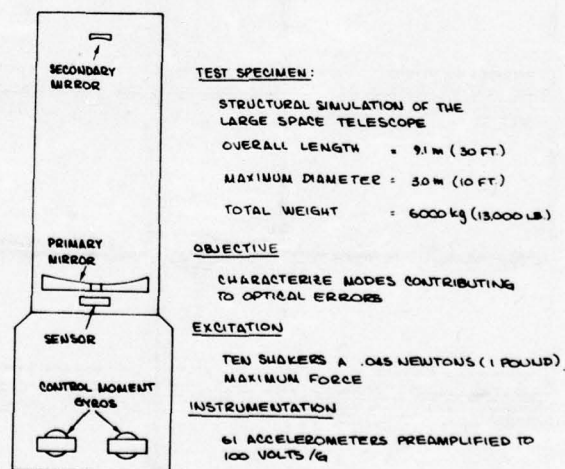 SECONDARY
MIRROR
PRIMARY
MIRROR
SENSOR
CONTROL MOMENT
GYROS
TEST SPECIMEN:
STRUCTURAL SIMULATION OF THE
LARGE SPACE TELESCOPE
OVERALL LENGTH = 9.1 m (30 FT.)
MAXIMUM DIAMETER = 3.0 m (10 FT.)
TOTAL WEIGHT = 6000 kg (13,000 LB.)
OBJECTIVE
CHARACTERIZE MODES CONTRIBUTING
TO OPTICAL ERRORS
EXCITATION
TEN SHAKERS A .045 NEWTONS (1 POUND)
MAXIMUM FORCE
INSTRUMENTATION
61 ACCELEROMETERS PREAMPLIFIED TO
100 VOLTS/G